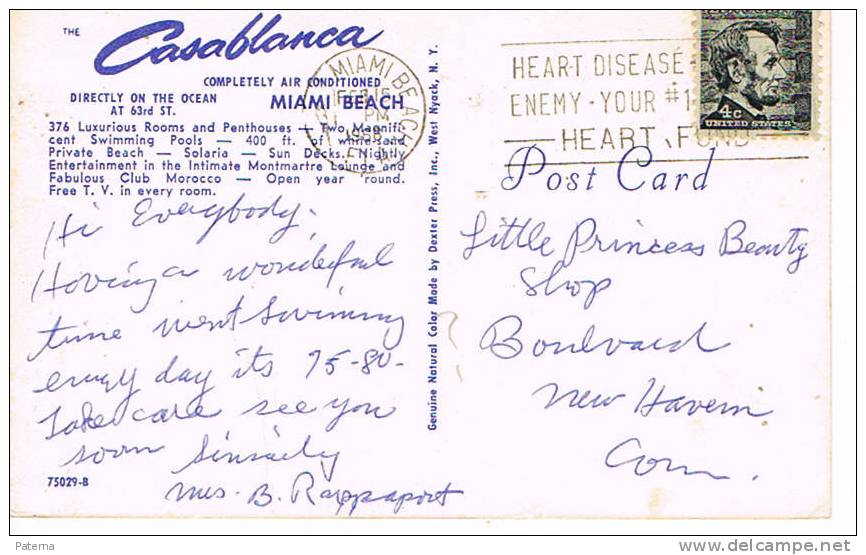 THE
Casablanca
COMPLETELY AIR CONDITIONED
DIRECTLY ON THE OCEAN
AT 63rd ST.
MIAMI BEACH
376 Luxurious Rooms and Penthouses — Two Magnifi-
cent Swimming Pools — 400 ft. of white sand
Private Beach — Solaria — Sun Decks. Nightly
Entertainment in the Intimate Montmartre Lounge and
Fabulous Club Morocco — Open year round.
Free T. V. in every room.
Hi Everybody,
Having a wonderful
time went swimming
every day its 75-80-
Take care see you
soon Sincerely
Mrs. B. Rappaport
75029-B
Genuine Natural Color Made by Dexter Press, Inc., West Nyack, N. Y.
MIAMI BEACH
FEB 15
PM
HEART DISEASE
ENEMY - YOUR #1
HEART FUND
4¢
UNITED STATES
Post Card
Little Princess Beauty
Shop
Boulvard
New Haven
Conn.
Paterna
www.delcampe.net